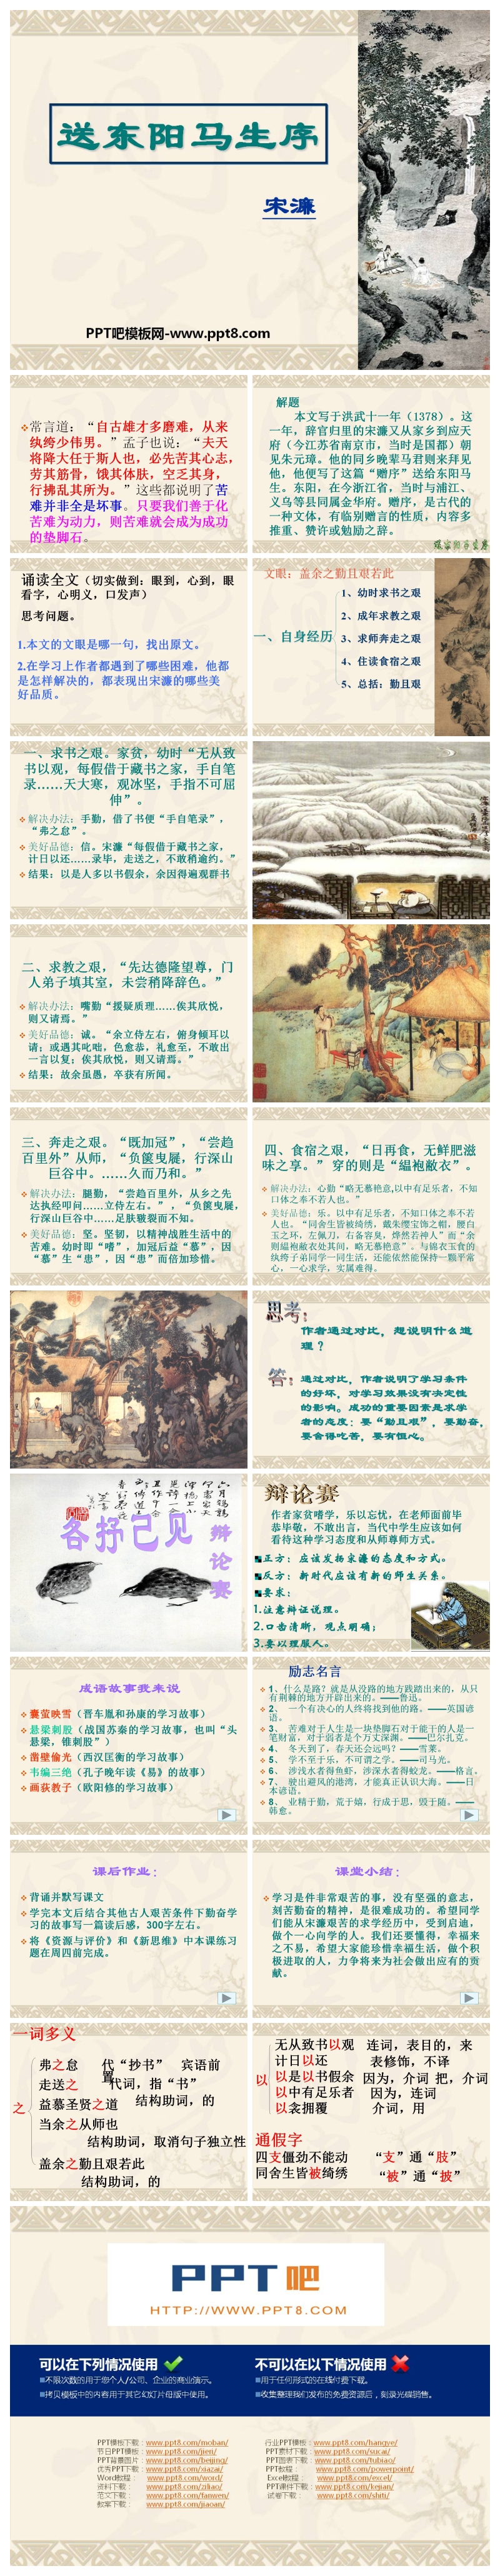 送东阳马生序
宋濂
PPT吧模板网-www.ppt8.com
常言道：“自古雄才多磨难，从来
纨绔少伟男。”孟子也说：“夫天
将降大任于斯人也，必先苦其心志，
劳其筋骨，饿其体肤，空乏其身，
行拂乱其所为。”这些都说明了苦
难并非全是坏事。只要我们善于化
苦难为动力，则苦难就会成为成功
的垫脚石。
解题
本文写于洪武十一年（1378）。这
一年，辞官归里的宋濂又从家乡到应天
府（今江苏省南京市，当时是国都）朝
见朱元璋。他的同乡晚辈马君则来拜见
他，他便写了这篇“赠序”送给东阳马
生。东阳，在今浙江省，当时与浦江、
义乌等县同属金华府。赠序，是古代的
一种文体，有临别赠言的性质，内容多
推重、赞许或勉励之辞。
诵读全文（切实做到：眼到，心到，眼
看字，心明义，口发声）
思考问题。
1.本文的文眼是哪一句，找出原文。
2.在学习上作者都遇到了哪些困难，他都
是怎样解决的，都表现出宋濂的哪些美
好品质。
文眼：盖余之勤且艰若此
一、自身经历
1、幼时求书之艰
2、成年求教之艰
3、求师奔走之艰
4、住读食宿之艰
5、总括：勤且艰
一、求书之艰。家贫，幼时“无从致
书以观，每假借于藏书之家，手自笔
录……天大寒，观冰坚，手指不可屈
伸”。
解决办法：手勤，借了书便“手自笔录”，
“弗之怠”。
美好品德：信。宋濂“每假借于藏书之家，
计日以还……录毕，走送之，不敢稍逾约。”
结果：以是人多以书假余，余因得遍观群书
二、求教之艰，“先达德隆望尊，门
人弟子填其室，未尝稍降辞色。”
解决办法：嘴勤“援疑质理……俟其欣悦，
则又请焉。”
美好品德：诚。“余立侍左右，俯身倾耳以
请；或遇其叱咄，色愈恭，礼愈至，不敢出
一言以复；俟其欣悦，则又请焉。”
结果：故余虽愚，卒获有所闻。
三、奔走之艰。“既加冠”，“尝趋
百里外”从师，“负箧曳屣，行深山
巨谷中。……久而乃和。”
解决办法：腿勤，“尝趋百里外，从乡之先
达执经叩问……立侍左右。”，“负箧曳屣，
行深山巨谷中……足肤皲裂而不知。
美好品德：坚。坚韧，以精神战胜生活中的
苦难。幼时即“嗜”，加冠后益“慕”，因
“慕”生“患”，因“患”而倍加珍惜。
四、食宿之艰，“日再食，无鲜肥滋
味之享。” 穿的则是“緼袍敝衣”。
解决办法：心勤“略无慕艳意,以中有足乐者，不知
口体之奉不若人也。”
美好品德：乐。以中有足乐者，不知口体之奉不若
人也。“同舍生皆被绮绣，戴朱缨宝饰之帽，腰白
玉之环，左佩刀，右备容臭，烨然若神人”而“余
则緼袍敝衣处其间，略无慕艳意”。与锦衣玉食的
纨绔子弟同学一同生活，还能依然能保持一颗平常
心，一心求学，实属难得。
思考：
作者通过对比，想说明什么道
理？
答：
通过对比，作者说明了学习条件
的好坏，对学习效果没有决定性
的影响。成功的重要因素是求学
者的态度：要“勤且艰”，要勤奋，
要舍得吃苦，要有恒心。
各抒己见
辩论赛
辩论赛
作者家贫嗜学，乐以忘忧，在老师面前毕
恭毕敬，不敢出言，当代中学生应该如何
看待这种学习态度和从师尊师方式。
正方：应该发扬宋濂的态度和方式。
反方：新时代应该有新的师生关系。
要求：
1.注意辩证说理。
2.口齿清晰，观点明确；
3.要以理服人。
成语故事我来说
囊萤映雪（晋车胤和孙康的学习故事）
悬梁刺股（战国苏秦的学习故事，也叫“头
悬梁，锥刺股”）
凿壁偷光（西汉匡衡的学习故事）
韦编三绝（孔子晚年读《易》的故事）
画荻教子（欧阳修的学习故事）
励志名言
1、什么是路？就是从没路的地方践踏出来的，从只
有荆棘的地方开辟出来的。——鲁迅。
2、 一个有决心的人终将找到他的路。——英国谚
语。
3、 苦难对于人生是一块垫脚石对于能干的人是一
笔财富，对于弱者是个万丈深渊。——巴尔扎克。
4、 冬天到了，春天还会远吗？——雪莱。
5、 学不至于乐，不可谓之学。——司马光。
6、 涉浅水者得鱼虾，涉深水者得蛟龙。——格言。
7、 驶出避风的港湾，才能真正认识大海。——日
本谚语。
8、 业精于勤，荒于嬉，行成于思，毁于随。——
韩愈。
课后作业：
背诵并默写课文
学完本文后结合其他古人艰苦条件下勤奋学
习的故事写一篇读后感，300字左右。
将《资源与评价》和《新思维》中本课练习
题在周四前完成。
课堂小结：
学习是件非常艰苦的事，没有坚强的意志，
刻苦勤奋的精神，是很难成功的。希望同学
们能从宋濂艰苦的求学经历中，受到启迪，
做个一心向学的人。我们还要懂得，幸福来
之不易，希望大家能珍惜幸福生活，做个积
极进取的人，力争将来为社会做出应有的贡
献。
一词多义
之
弗之怠 代“抄书” 宾语前置
走送之 代词，指“书”
益慕圣贤之道 结构助词，的
当余之从师也
结构助词，取消句子独立性
盖余之勤且艰若此
结构助词，的
以
无从致书以观 连词，表目的，来
计日以还 表修饰，不译
以是以书假余 因为，介词 把，介词
以中有足乐者 因为，连词
以衾拥覆 介词，用
通假字
四支僵劲不能动 “支”通“肢”
同舍生皆被绮绣 “被”通“披”
PPT吧
HTTP://WWW.PPT8.COM
可以在下列情况使用
不限次数的用于您个人/公司、企业的商业演示。
拷贝模板中的内容用于其它幻灯片母版中使用。
不可以在以下情况使用
用于任何形式的在线付费下载。
收集整理我们发布的免费资源后，刻录光碟销售。
PPT模板下载：www.ppt8.com/moban/
节日PPT模板：www.ppt8.com/jieri/
PPT背景图片：www.ppt8.com/beijing/
优秀PPT下载：www.ppt8.com/xiazai/
Word教程：www.ppt8.com/word/
资料下载：www.ppt8.com/ziliao/
范文下载：www.ppt8.com/fanwen/
教案下载：www.ppt8.com/jiaoan/
行业PPT模板：www.ppt8.com/hangye/
PPT素材下载：www.ppt8.com/sucai/
PPT图表下载：www.ppt8.com/tubiao/
PPT教程：www.ppt8.com/powerpoint/
Excel教程：www.ppt8.com/excel/
PPT课件下载：www.ppt8.com/kejian/
试卷下载：www.ppt8.com/shiti/